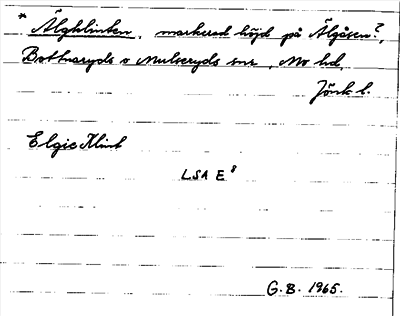 * Älgklinten, markerad höjd på Älgåsen?,
Bottnaryds o Mulseryds snr, Mo hd,
Jönk. l.
Elgie Klint
LSA E⁸
G.B. 1965.